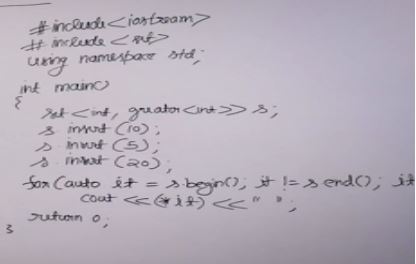 #include<iostream>
#include<set>
using namespace std;
int main()
{
set<int, greator<int>> s;
s. insert (10);
s. insert (5);
s. insert (20);
for (auto it = s.begin(); it != s.end(); it
cout << (*it) << " ";
return 0;
}